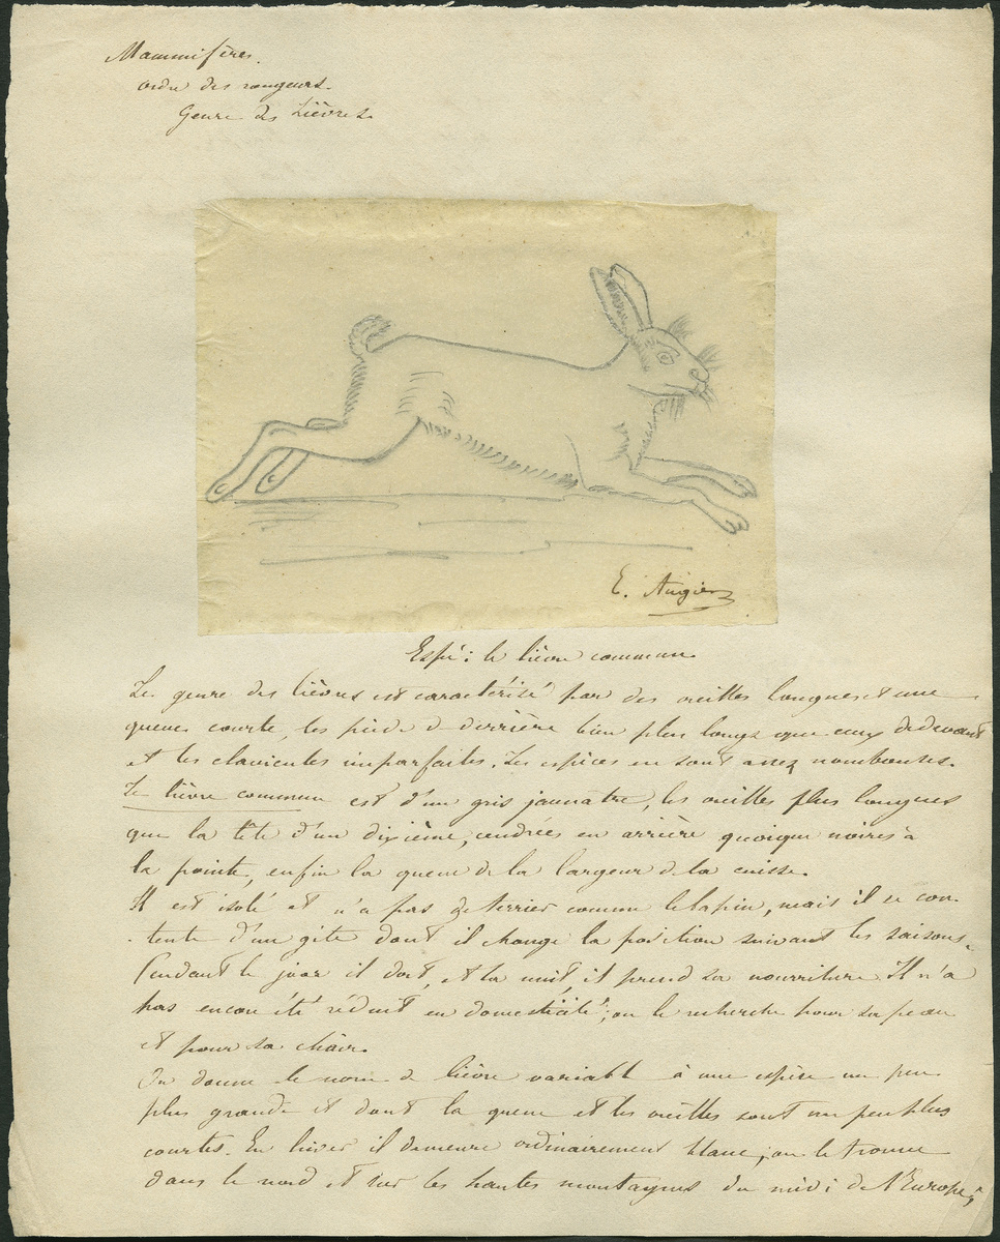 Mammifères.
ordre des rongeurs.
Genre des Lièvres.
E. Augier
Espè: le lièvre commun.
Le genre des lièvres est caractérisé par des oreilles longues et une
queue courte, les pieds de derrière bien plus longs que ceux de devant
et les clavicules imparfaites. Les espèces en sont assez nombreuses.
Le lièvre commun est d'un gris jaunâtre, les oreilles plus longues
que la tête d'un dixième, cendrées en arrière quoique noires à
la pointe, enfin la queue de la largeur de la cuisse.
Il est isolé et n'a pas de terrier comme le lapin, mais il se con-
tente d'un gîte dont il change la position suivant les saisons.
Pendant le jour il dort, et la nuit, il prend sa nourriture. Il n'a
pas encore été réduit en domesticité; on le recherche pour sa peau
et pour sa chair.
On donne le nom de lièvre variable à une espèce un peu
plus grande et dont la queue et les oreilles sont un peu plus
courtes. En hiver il demeure ordinairement blanc; on le trouve
dans le nord et sur les hautes montagnes du midi de l'Europe;